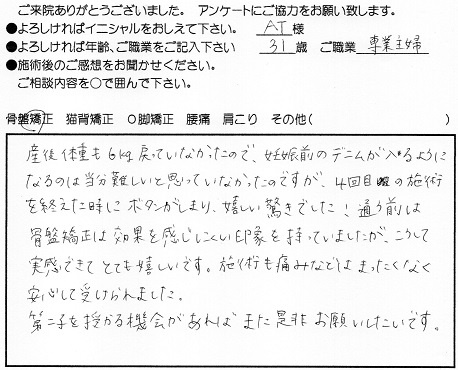 ご来院ありがとうございました。 アンケートにご協力をお願い致します。
●よろしければイニシャルをおしえて下さい。 AT 様
●よろしければ年齢、ご職業をご記入下さい 31 歳 ご職業 専業主婦
●施術後のご感想をお聞かせください。
ご相談内容を○で囲んで下さい。
骨盤矯正 猫背矯正 O脚矯正 腰痛 肩こり その他( )
産後体重も6kg戻っていなかったので、妊娠前のデニムが入るように
なるのは当分難しいと思っていなかったのですが、4回目の施術
を終えた時にボタンがしまり、嬉しい驚きでした！通う前は
骨盤矯正は効果を感じにくい印象を持っていましたが、こうして
実感できてとても嬉しいです。施術も痛みなどはまったくなく
安心して受けられました。
第二子を授かる機会があればまた是非お願いしたいです。